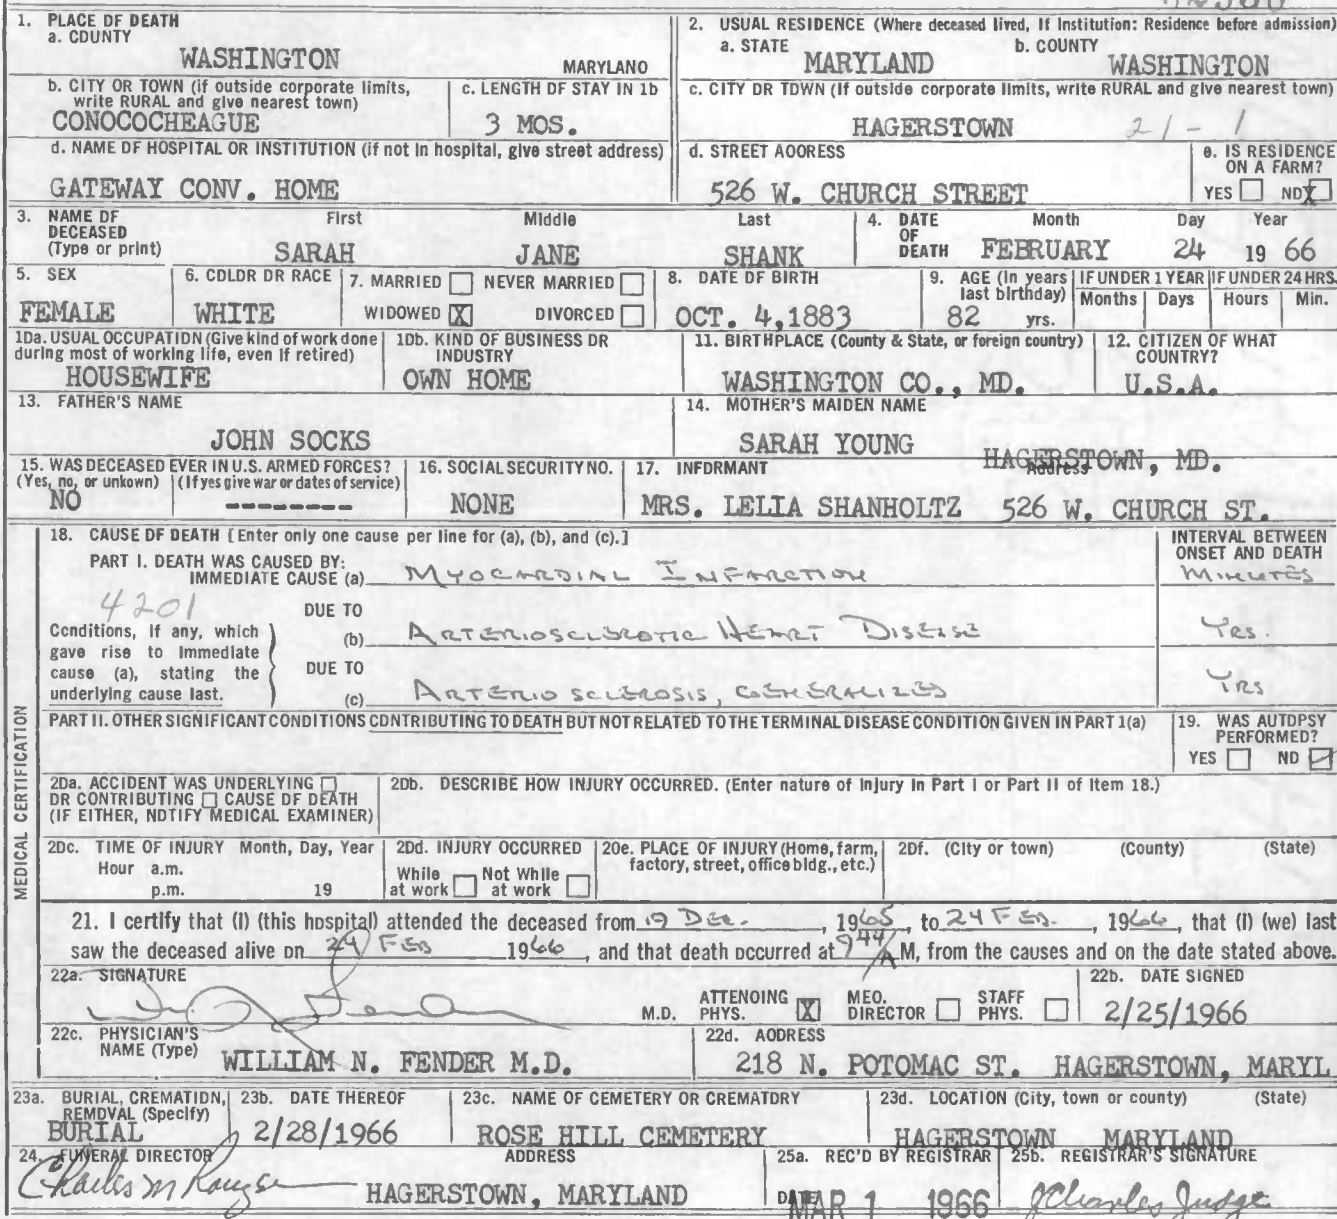 1. PLACE OF DEATH
a. COUNTY
WASHINGTON MARYLAND
2. USUAL RESIDENCE (Where deceased lived, If Institution: Residence before admission)
a. STATE b. COUNTY
MARYLAND WASHINGTON
b. CITY OR TOWN (if outside corporate limits, write RURAL and give nearest town)
CONOCOCHEAGUE
c. LENGTH OF STAY IN 1b
3 MOS.
c. CITY OR TOWN (If outside corporate limits, write RURAL and give nearest town)
HAGERSTOWN 21-1
d. NAME OF HOSPITAL OR INSTITUTION (if not in hospital, give street address)
GATEWAY CONV. HOME
d. STREET ADDRESS
526 W. CHURCH STREET
e. IS RESIDENCE ON A FARM?
YES NO X
3. NAME OF DECEASED (Type or print)
First Middle Last
SARAH JANE SHANK
4. DATE OF DEATH
Month Day Year
FEBRUARY 24 19 66
5. SEX
FEMALE
6. COLOR OR RACE
WHITE
7. MARRIED NEVER MARRIED
WIDOWED X DIVORCED
8. DATE OF BIRTH
OCT. 4,1883
9. AGE (In years last birthday)
82 yrs.
IF UNDER 1 YEAR
Months Days
IF UNDER 24 HRS.
Hours Min.
10a. USUAL OCCUPATION (Give kind of work done during most of working life, even if retired)
HOUSEWIFE
10b. KIND OF BUSINESS OR INDUSTRY
OWN HOME
11. BIRTHPLACE (County & State, or foreign country)
WASHINGTON CO., MD.
12. CITIZEN OF WHAT COUNTRY?
U.S.A.
13. FATHER'S NAME
JOHN SOCKS
14. MOTHER'S MAIDEN NAME
SARAH YOUNG
15. WAS DECEASED EVER IN U.S. ARMED FORCES?
(Yes, no, or unkown) (If yes give war or dates of service)
NO --------
16. SOCIAL SECURITY NO.
NONE
17. INFORMANT Address
HAGERSTOWN, MD.
MRS. LELIA SHANHOLTZ 526 W. CHURCH ST.
MEDICAL CERTIFICATION
18. CAUSE OF DEATH [Enter only one cause per line for (a), (b), and (c).]
INTERVAL BETWEEN ONSET AND DEATH
PART I. DEATH WAS CAUSED BY:
IMMEDIATE CAUSE (a) MYOCARDIAL INFARCTION MINUTES
4201
Conditions, if any, which gave rise to immediate cause (a), stating the underlying cause last.
DUE TO
(b) ARTERIOSCLEROTIC HEART DISEASE YRS.
DUE TO
(c) ARTERIOSCLEROSIS, GENERALIZED YRS
PART II. OTHER SIGNIFICANT CONDITIONS CONTRIBUTING TO DEATH BUT NOT RELATED TO THE TERMINAL DISEASE CONDITION GIVEN IN PART 1(a)
19. WAS AUTOPSY PERFORMED?
YES NO
20a. ACCIDENT WAS UNDERLYING OR CONTRIBUTING CAUSE OF DEATH (IF EITHER, NOTIFY MEDICAL EXAMINER)
20b. DESCRIBE HOW INJURY OCCURRED. (Enter nature of Injury in Part I or Part II of Item 18.)
20c. TIME OF INJURY Month, Day, Year
Hour a.m.
p.m. 19
20d. INJURY OCCURRED
While at work Not While at work
20e. PLACE OF INJURY (Home, farm, factory, street, office bldg., etc.)
20f. (City or town) (County) (State)
21. I certify that (I) (this hospital) attended the deceased from 19 DEC., 1965, to 24 FEB., 1966, that (I) (we) last
saw the deceased alive on 24 FEB 1966, and that death occurred at 9 44 A M, from the causes and on the date stated above.
22a. SIGNATURE
M.D. ATTENDING PHYS. X MED. DIRECTOR STAFF PHYS.
22b. DATE SIGNED
2/25/1966
22c. PHYSICIAN'S NAME (Type)
WILLIAM N. FENDER M.D.
22d. ADDRESS
218 N. POTOMAC ST. HAGERSTOWN, MARYL
23a. BURIAL, CREMATION, REMOVAL (Specify)
BURIAL
23b. DATE THEREOF
2/28/1966
23c. NAME OF CEMETERY OR CREMATORY
ROSE HILL CEMETERY
23d. LOCATION (City, town or county) (State)
HAGERSTOWN MARYLAND
24. FUNERAL DIRECTOR ADDRESS
Charles M HAGERSTOWN, MARYLAND
25a. REC'D BY REGISTRAR
DATE MAR 1 1966
25b. REGISTRAR'S SIGNATURE
J Charles Judge